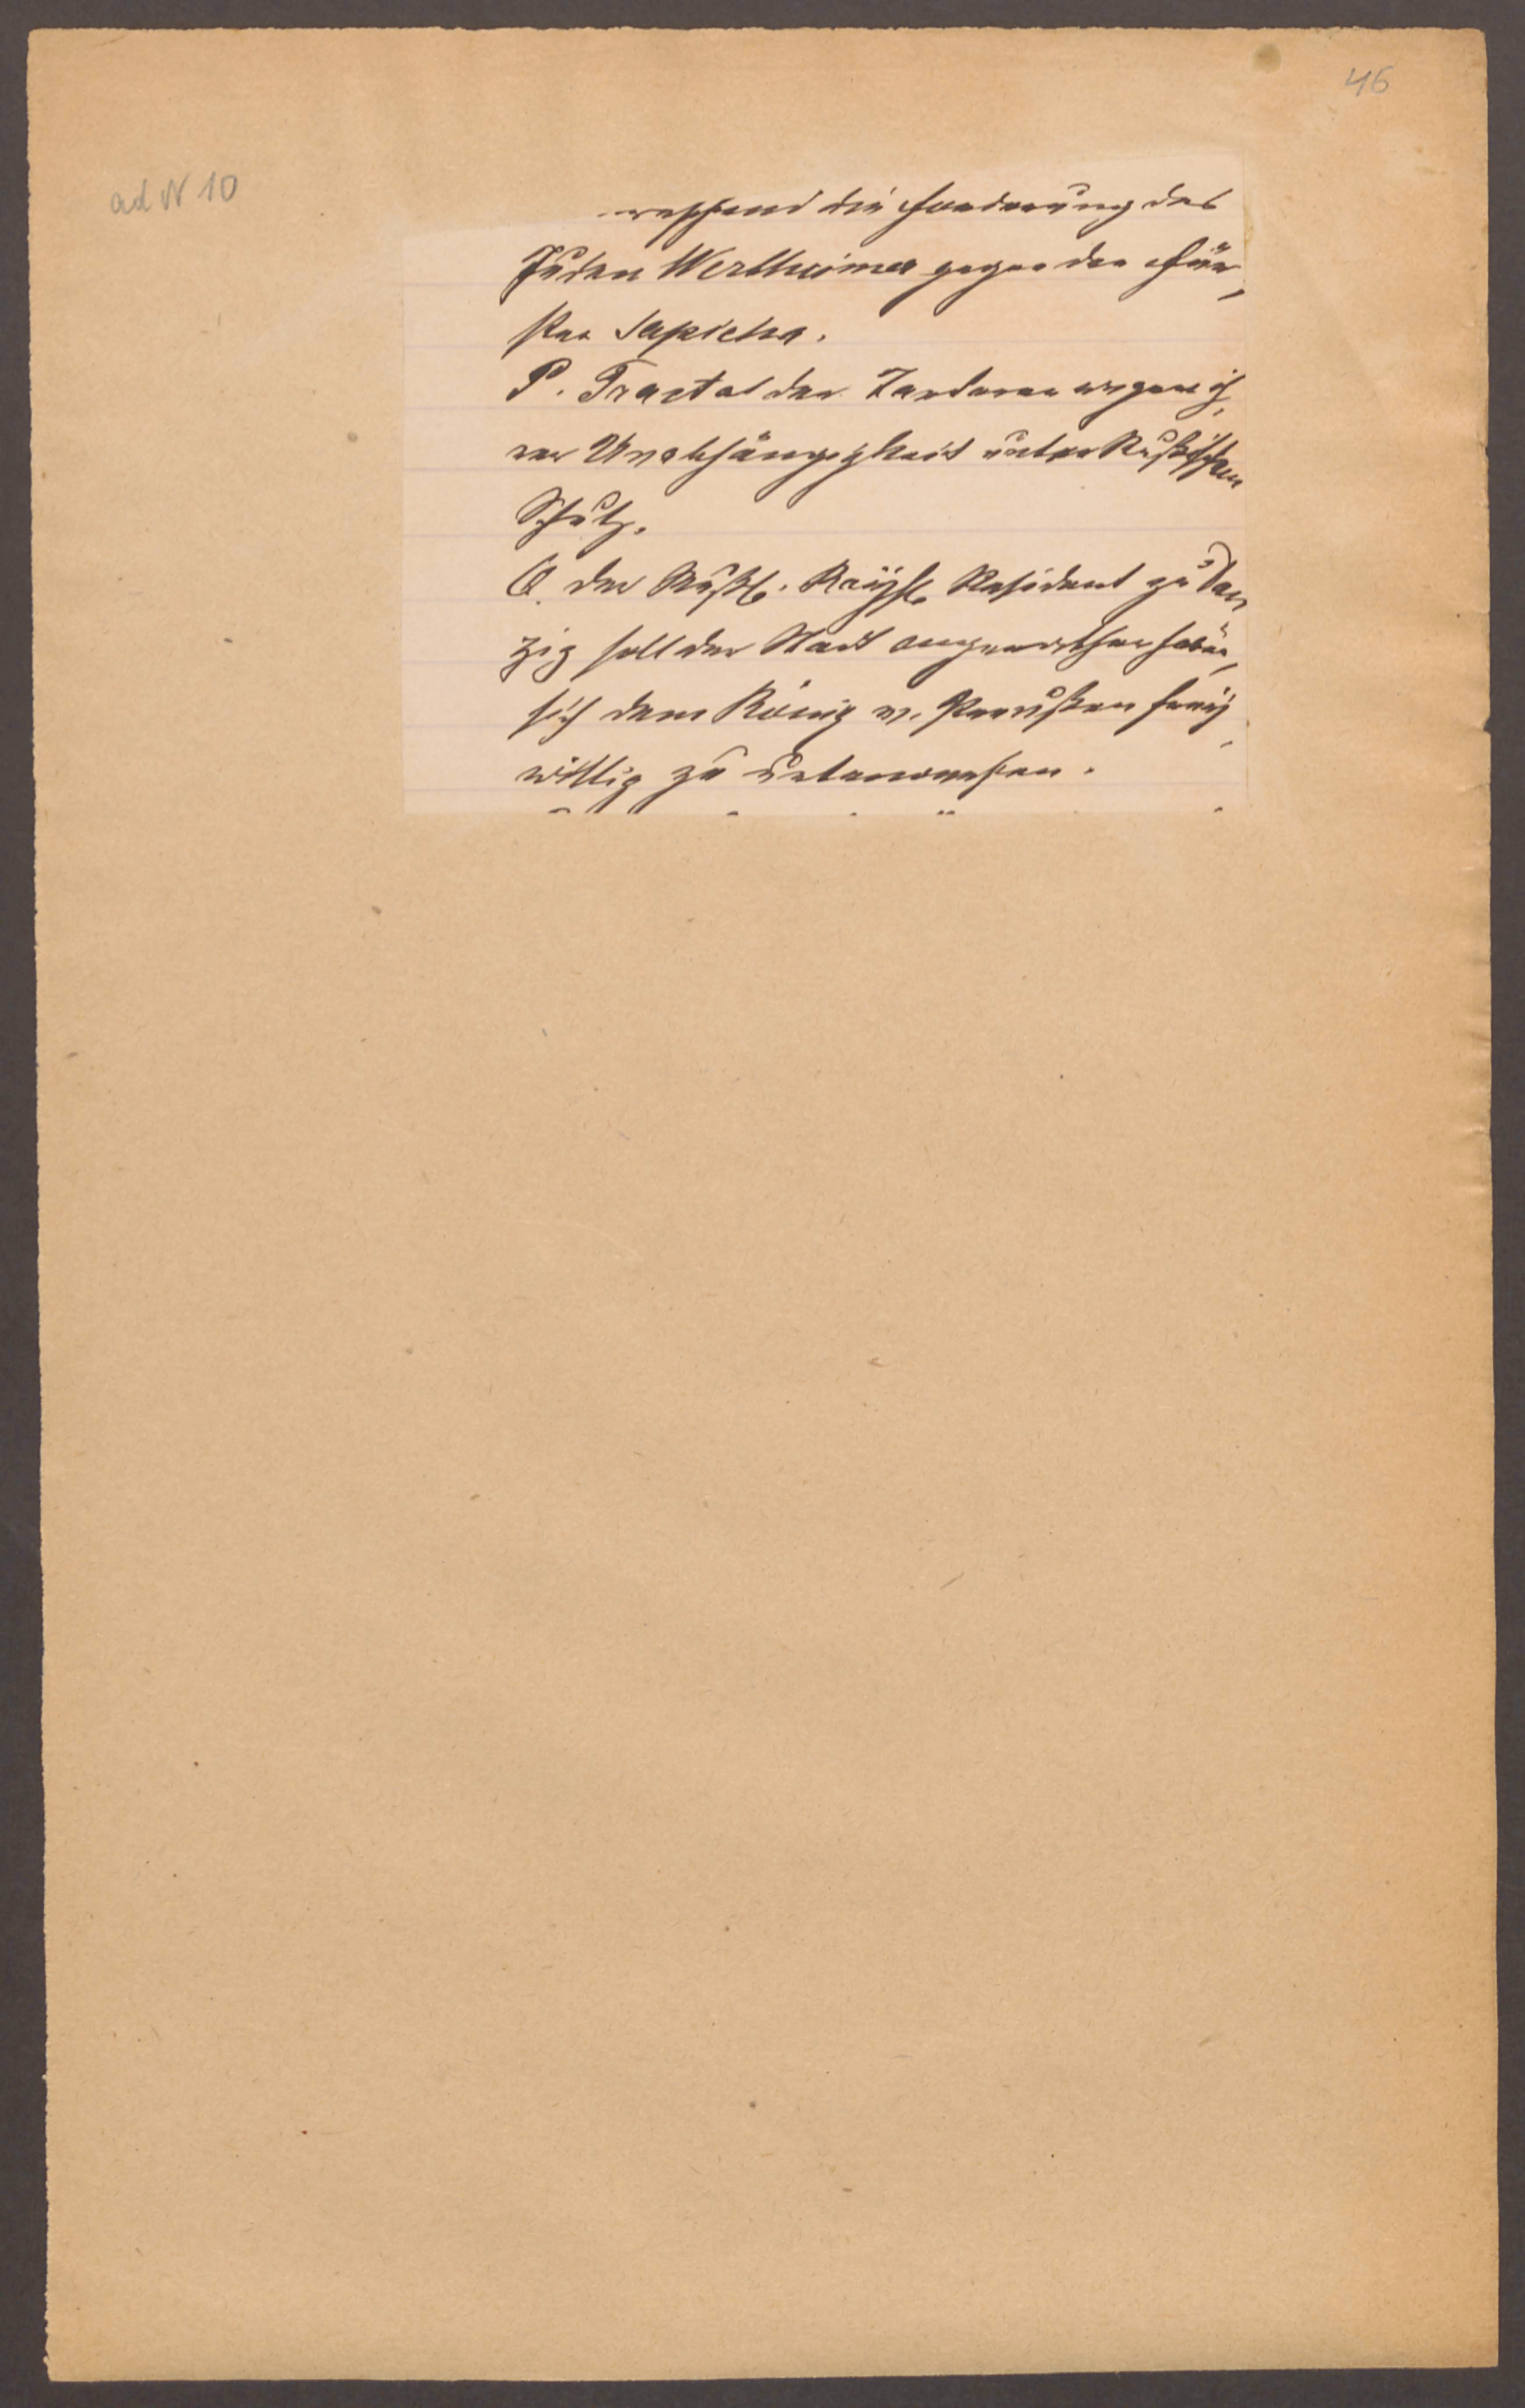 46
ad N 10
die Forderung des
Juden Wertheimer gegen den Für,
sten Sapieha.
P. Tractat der Tardaren wegen ih,
rer Unabhängigkeit unter Rußischen
Schutz.
Q. der Rußl. Kaysl. Resident zu Dan
zig soll der Stadt angerathen haben,
sich dem König v. Preußen frey,
willig zu unterwerfen.